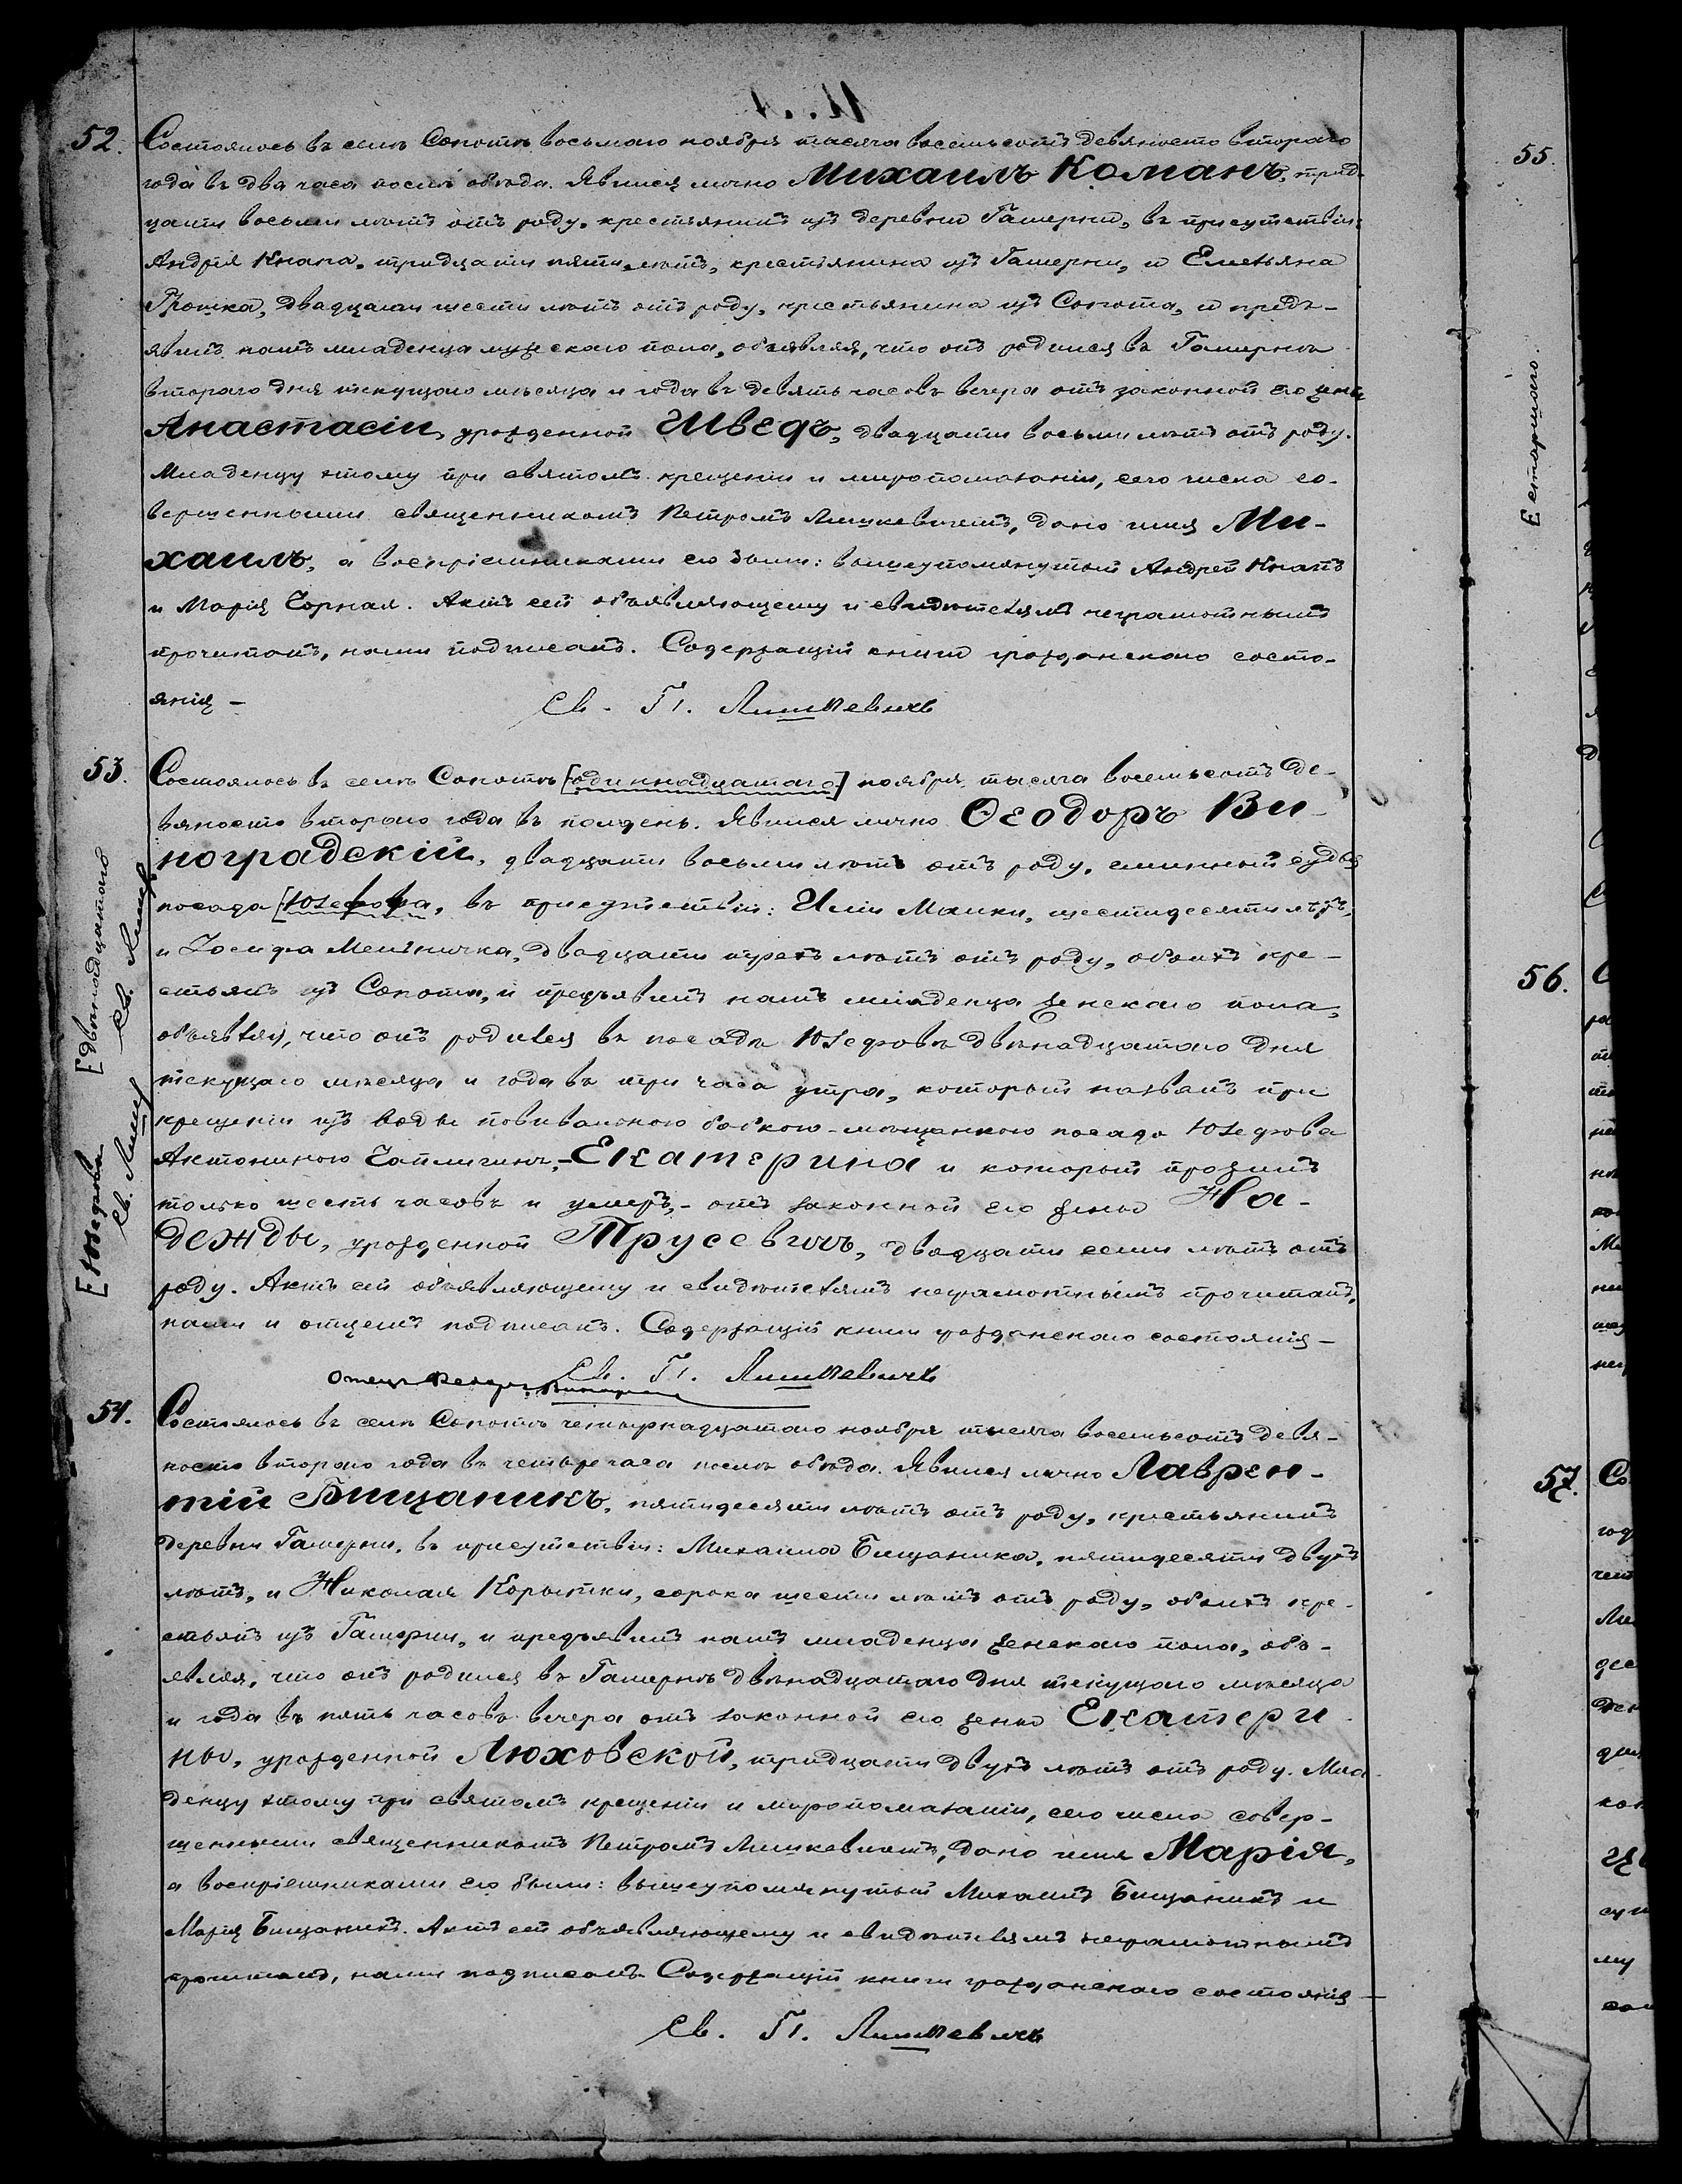 52. Состоялось въ селѣ Сопотѣ восьмаго ноября тысяча восемьсотъ девяносто втораго
года въ два часа послѣ обѣда. Явился лично Михаилъ Команъ, трид-
цати восьми лѣтъ отъ роду, крестьянинъ изъ деревни Гамерни, въ присутствіи:
Андрея Кнапа, тридцати пяти лѣтъ, крестьянина изъ Гамерни, и Емельяна
двадцати шести лѣтъ отъ роду, крестьянина изъ Сопота, и предъ-
явилъ намъ младенца мужескаго пола, объявляя, что онъ родился въ Гамернѣ
втораго дня текущаго мѣсяца и года въ девять часовъ вечера отъ законной его жены
Анастасіи, урожденной Шведъ, двадцати восьми лѣтъ отъ роду.
Младенцу этому при святомъ крещеніи и миропомазаніи, сего числа со-
вершенными священникомъ Петромъ Лишкевичемъ, дано имя Ми-
хаилъ, а воспріемниками его были: вышеупомянутый Андрей Кнапъ
и Марія Чорная. Актъ сей объявляющему и свидѣтелямъ неграмотнымъ
прочитанъ, нами подписанъ. Содержащій книги гражданскаго состо-
янія –
Св. П. Лишкевичъ
53. Состоялось въ селѣ Сопотѣ [одиннадцатаго] ноября тысяча восемьсотъ де-
вяносто втораго года въ полдень. Явился лично Ѳеодоръ Ви-
ноградскій, двадцати восьми лѣтъ отъ роду, гминный судья
посада [Юзефова, въ присутствіи: Иліи Малики, шестидесяти лѣтъ,
и Іосифа Мельничка, двадцати трехъ лѣтъ отъ роду, обоихъ кре-
стьянъ изъ Сопота, и предъявилъ намъ младенца женскаго пола,
объявляя, что онъ родился въ посадѣ Юзефовѣ двѣнадцатаго дня
текущаго мѣсяца и года въ три часа утра, который названъ при
крещеніи изъ воды повивальною бабкою-мѣщанкою посада Юзефова
Антониною Чаплигинъ, – Екатерина и который прожилъ
только шесть часовъ и умеръ, – отъ законной его жены На-
дежды, урожденной Трусевичъ, двадцати семи лѣтъ отъ
роду. Актъ сей объявляющему и свидѣтелямъ неграмотнымъ прочитанъ,
нами и отцемъ подписанъ. Содержащій книги гражданскаго состоянія –
Св. П. Лишкевичъ
Отецъ Ѳеодоръ
[двѣнадцатаго
Св. Лишкев
[Юзефова
Св. Лишкев
54. Состоялось въ селѣ Сопотѣ четырнадцатаго ноября тысяча восемьсотъ девя-
носто втораго года въ четыре часа послѣ обѣда. Явился лично Лаврен-
тій Бищаникъ, пятидесяти лѣтъ отъ роду, крестьянинъ
деревни Гамерни, въ присутствіи: Михаила Бищаника, пятидесяти двухъ
лѣтъ, и Николая Корытки, сорока шести лѣтъ отъ роду, обоихъ кре-
стьянъ изъ Гамерни, и предъявилъ намъ младенца женскаго пола, объ-
являя, что онъ родился въ Гамернѣ двѣнадцатаго дня текущаго мѣсяца
и года въ пять часовъ вечера отъ законной его жены Екатери-
ны, урожденной Люховской, тридцати двухъ лѣтъ отъ роду. Мла-
денцу этому при святомъ крещеніи и миропомазаніи, сего числа совер-
шенными священникомъ Петромъ Лишкевичемъ, дано имя Марія,
а воспріемниками его были: вышеупомянутый Михаилъ Бищаникъ и
Марія Бищаникъ. Актъ сей объявляющему и свидѣтелямъ неграмотнымъ
прочитанъ, нами подписанъ. Содержащій книги гражданскаго состоянія –
Св. П. Лишкевичъ
55.
56.
57.